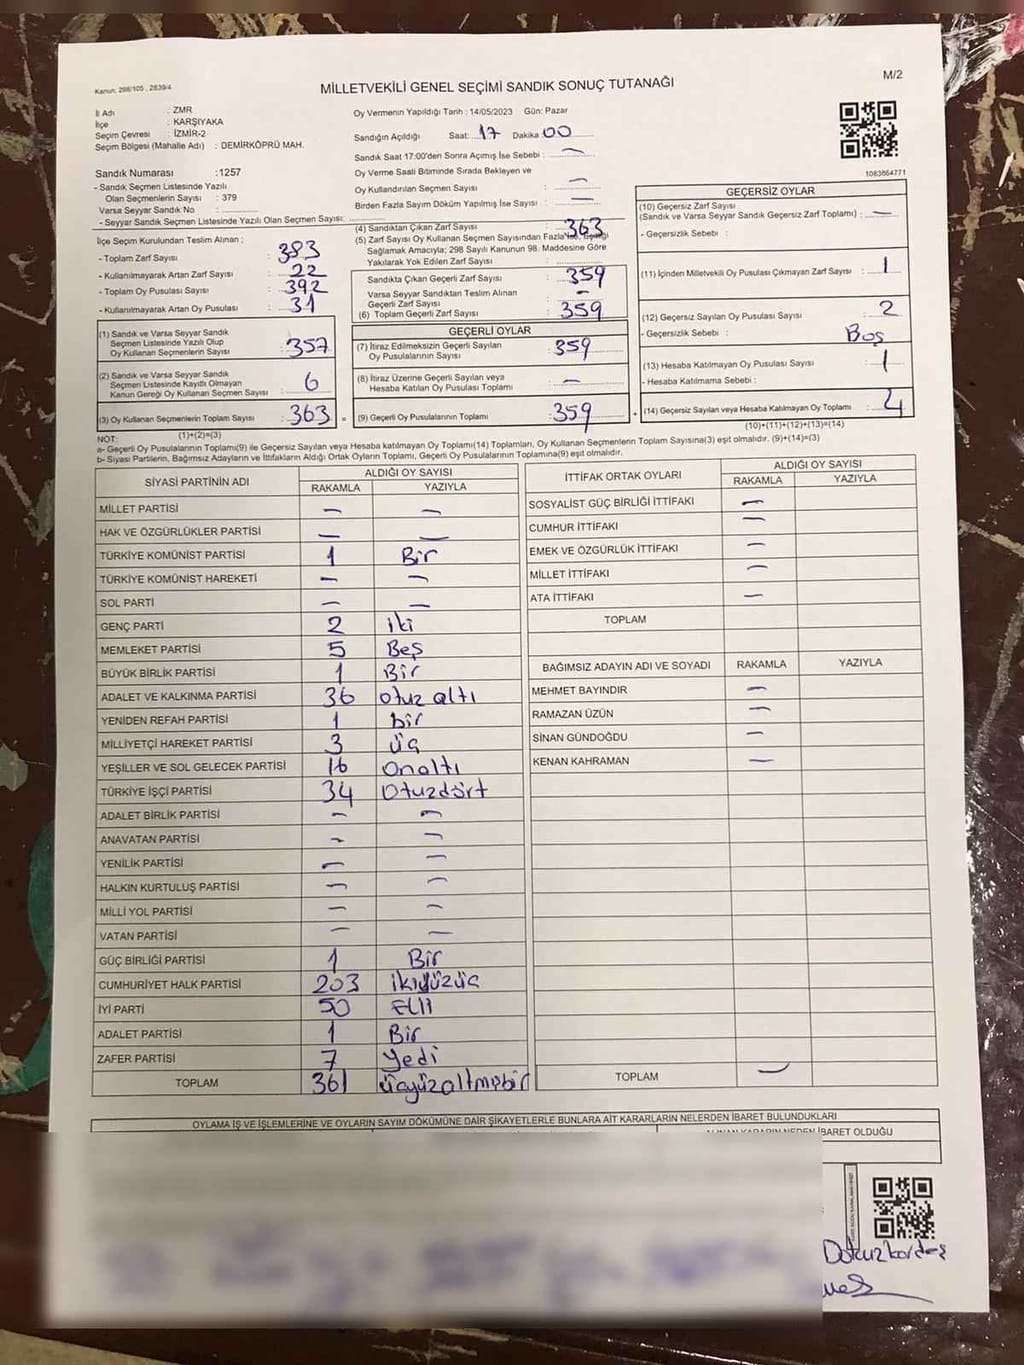 Kanun, 298/105 , 2839/4
MİLLETVEKİLİ GENEL SEÇİMİ SANDIK SONUÇ TUTANAĞI
M/2
İl Adı : ZMR
İlçe : KARŞIYAKA
Seçim Çevresi : İZMİR-2
Seçim Bölgesi (Mahalle Adı) : DEMİRKÖPRÜ MAH.
Sandık Numarası :1257
- Sandık Seçmen Listesinde Yazılı
Olan Seçmenlerin Sayısı : 379
Varsa Seyyar Sandık No :
- Seyyar Sandık Seçmen Listesinde Yazılı Olan Seçmen Sayısı:
Oy Vermenin Yapıldığı Tarih : 14/05/2023 Gün: Pazar
Sandığın Açıldığı Saat: 17 Dakika 00
Sandık Saat 17:00'den Sonra Açımış İse Sebebi : —
Oy Verme Saati Bitiminde Sırada Bekleyen ve
Oy Kullandırılan Seçmen Sayısı : —
Birden Fazla Sayım Döküm Yapılmış İse Sayısı : —
1083864771
İlçe Seçim Kurulundan Teslim Alınan ;
- Toplam Zarf Sayısı : 383
- Kullanılmayarak Artan Zarf Sayısı : 22
- Toplam Oy Pusulası Sayısı : 392
- Kullanılmayarak Artan Oy Pusulası : 31
(1) Sandık ve Varsa Seyyar Sandık
Seçmen Listesinde Yazılı Olup
Oy Kullanan Seçmenlerin Sayısı : 357
(2) Sandık ve Varsa Seyyar Sandık
Seçmen Listesinde Kayıtlı Olmayan
Kanun Gereği Oy Kullanan Seçmen Sayısı : 6
(3) Oy Kullanan Seçmenlerin Toplam Sayısı : 363
(1)+(2)=(3)
(4) Sandıktan Çıkan Zarf Sayısı : 363
(5) Zarf Sayısı Oy Kullanan Seçmen Sayısından Fazla İse,
Sağlamak Amacıyla; 298 Sayılı Kanunun 98. Maddesine Göre
Yakılarak Yok Edilen Zarf Sayısı :
Sandıkta Çıkan Geçerli Zarf Sayısı : 359
Varsa Seyyar Sandıktan Teslim Alınan
Geçerli Zarf Sayısı : —
(6) Toplam Geçerli Zarf Sayısı : 359
GEÇERLİ OYLAR
(7) İtiraz Edilmeksizin Geçerli Sayılan
Oy Pusulalarının Sayısı : 359
(8) İtiraz Üzerine Geçerli Sayılan veya
Hesaba Katılan Oy Pusulası Toplamı : —
(9) Geçerli Oy Pusulalarının Toplamı : 359
GEÇERSİZ OYLAR
(10) Geçersiz Zarf Sayısı
(Sandık ve Varsa Seyyar Sandık Geçersiz Zarf Toplamı) : —
- Geçersizlik Sebebi :
(11) İçinden Milletvekili Oy Pusulası Çıkmayan Zarf Sayısı : 1
(12) Geçersiz Sayılan Oy Pusulası Sayısı : 2
- Geçersizlik Sebebi : Boş
(13) Hesaba Katılmayan Oy Pusulası Sayısı : 1
- Hesaba Katılmama Sebebi :
(14) Geçersiz Sayılan veya Hesaba Katılmayan Oy Toplamı : 4
(10)+(11)+(12)+(13)=(14)
NOT:
a- Geçerli Oy Pusulalarının Toplamı(9) ile Geçersiz Sayılan veya Hesaba katılmayan Oy Toplamı(14) Toplamları, Oy Kullanan Seçmenlerin Toplam Sayısına(3) eşit olmalıdır. (9)+(14)=(3)
b- Siyasi Partilerin, Bağımsız Adayların ve İttifakların Aldığı Ortak Oyların Toplamı, Geçerli Oy Pusulalarının Toplamına(9) eşit olmalıdır.
SİYASİ PARTİNİN ADI ALDIĞI OY SAYISI
RAKAMLA YAZIYLA
MİLLET PARTİSİ — —
HAK VE ÖZGÜRLÜKLER PARTİSİ — —
TÜRKİYE KOMÜNİST PARTİSİ 1 Bir
TÜRKİYE KOMÜNİST HAREKETİ — —
SOL PARTİ — —
GENÇ PARTİ 2 iki
MEMLEKET PARTİSİ 5 Beş
BÜYÜK BİRLİK PARTİSİ 1 Bir
ADALET VE KALKINMA PARTİSİ 36 otuz altı
YENİDEN REFAH PARTİSİ 1 bir
MİLLİYETÇİ HAREKET PARTİSİ 3 üç
YEŞİLLER VE SOL GELECEK PARTİSİ 16 Onaltı
TÜRKİYE İŞÇİ PARTİSİ 34 Otuzdört
ADALET BİRLİK PARTİSİ — —
ANAVATAN PARTİSİ — —
YENİLİK PARTİSİ — —
HALKIN KURTULUŞ PARTİSİ — —
MİLLİ YOL PARTİSİ — —
VATAN PARTİSİ — —
GÜÇ BİRLİĞİ PARTİSİ 1 Bir
CUMHURİYET HALK PARTİSİ 203 ikiyüzüç
İYİ PARTİ 50 Elli
ADALET PARTİSİ 1 Bir
ZAFER PARTİSİ 7 Yedi
TOPLAM 361 üçyüzaltmışbir
İTTİFAK ORTAK OYLARI ALDIĞI OY SAYISI
RAKAMLA YAZIYLA
SOSYALİST GÜÇ BİRLİĞİ İTTİFAKI —
CUMHUR İTTİFAKI —
EMEK VE ÖZGÜRLÜK İTTİFAKI —
MİLLET İTTİFAKI —
ATA İTTİFAKI —
TOPLAM
BAĞIMSIZ ADAYIN ADI VE SOYADI RAKAMLA YAZIYLA
MEHMET BAYINDIR —
RAMAZAN ÜZÜN —
SİNAN GÜNDOĞDU —
KENAN KAHRAMAN —
TOPLAM —
OYLAMA İŞ VE İŞLEMLERİNE VE OYLARIN SAYIM DÖKÜMÜNE DAİR ŞİKAYETLERLE BUNLARA AİT KARARLARIN NELERDEN İBARET BULUNDUKLARI
ALINAN KARARIN NEDEN İBARET OLDUĞU